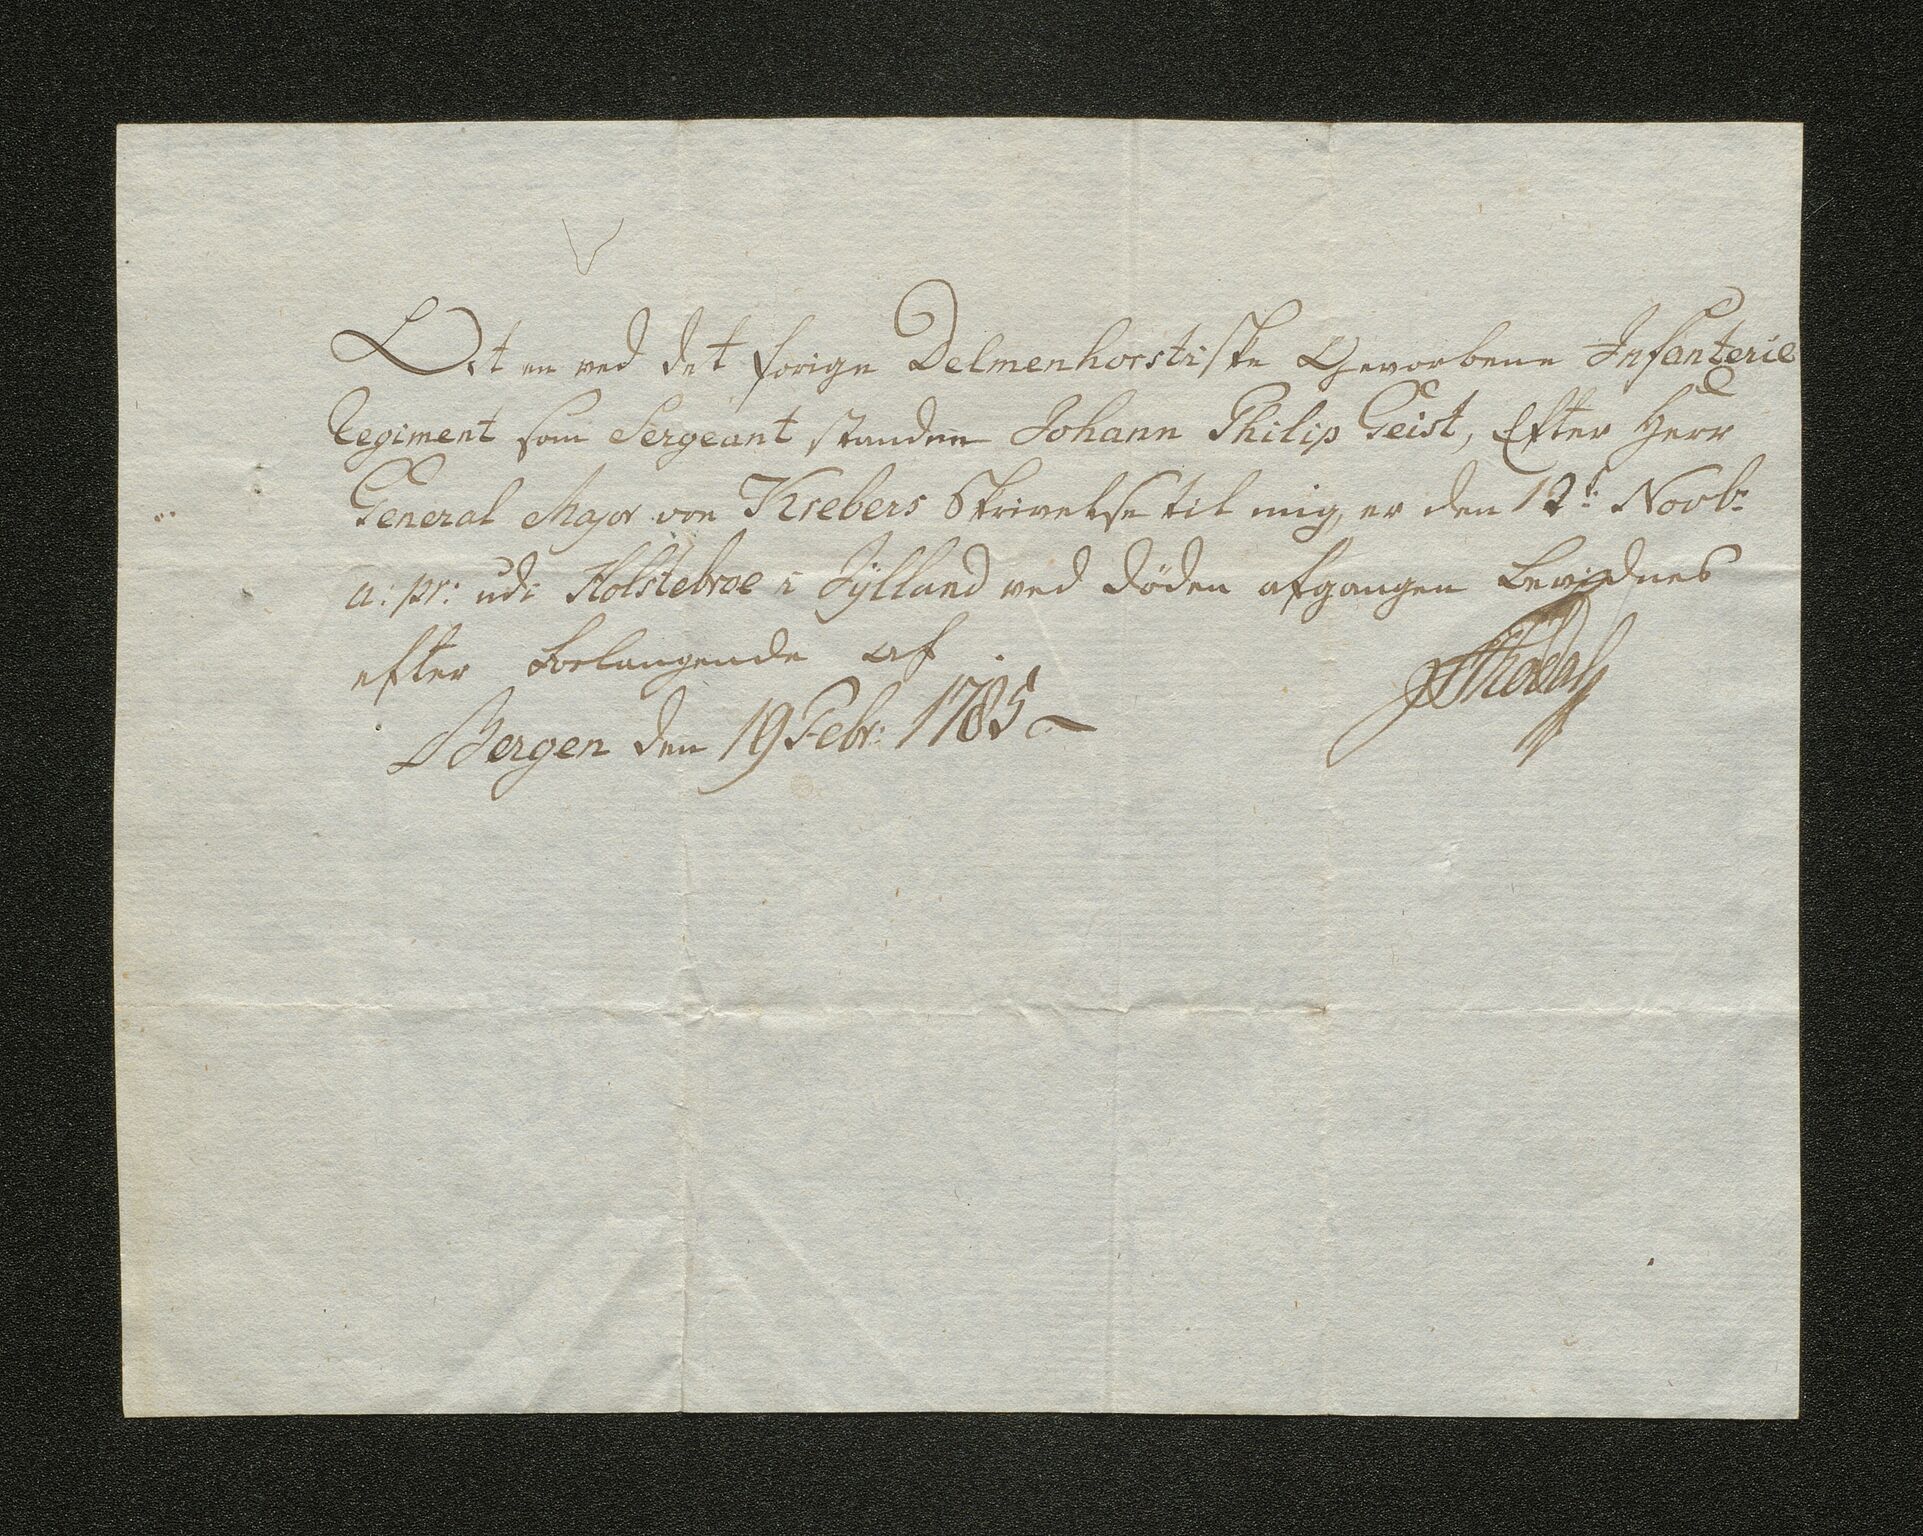 At en ved det forige Delmenhorstiske Gevorbene Infanterie
Regiment som Sergeant standen Johann Philip Geist, Efter Herr
General Major von Krebers Skrivelse til mig, er den 12t: Novb:
a: pr: udi Holstebroe i Jylland ved døden afgangen bevidnes
efter forlangende af
Bergen den 19 Febr: 1785